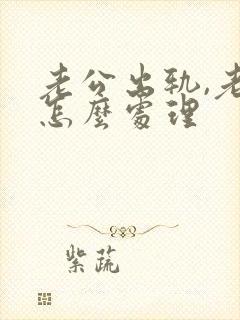 老公出轨,老
怎麼處理
紫蔬